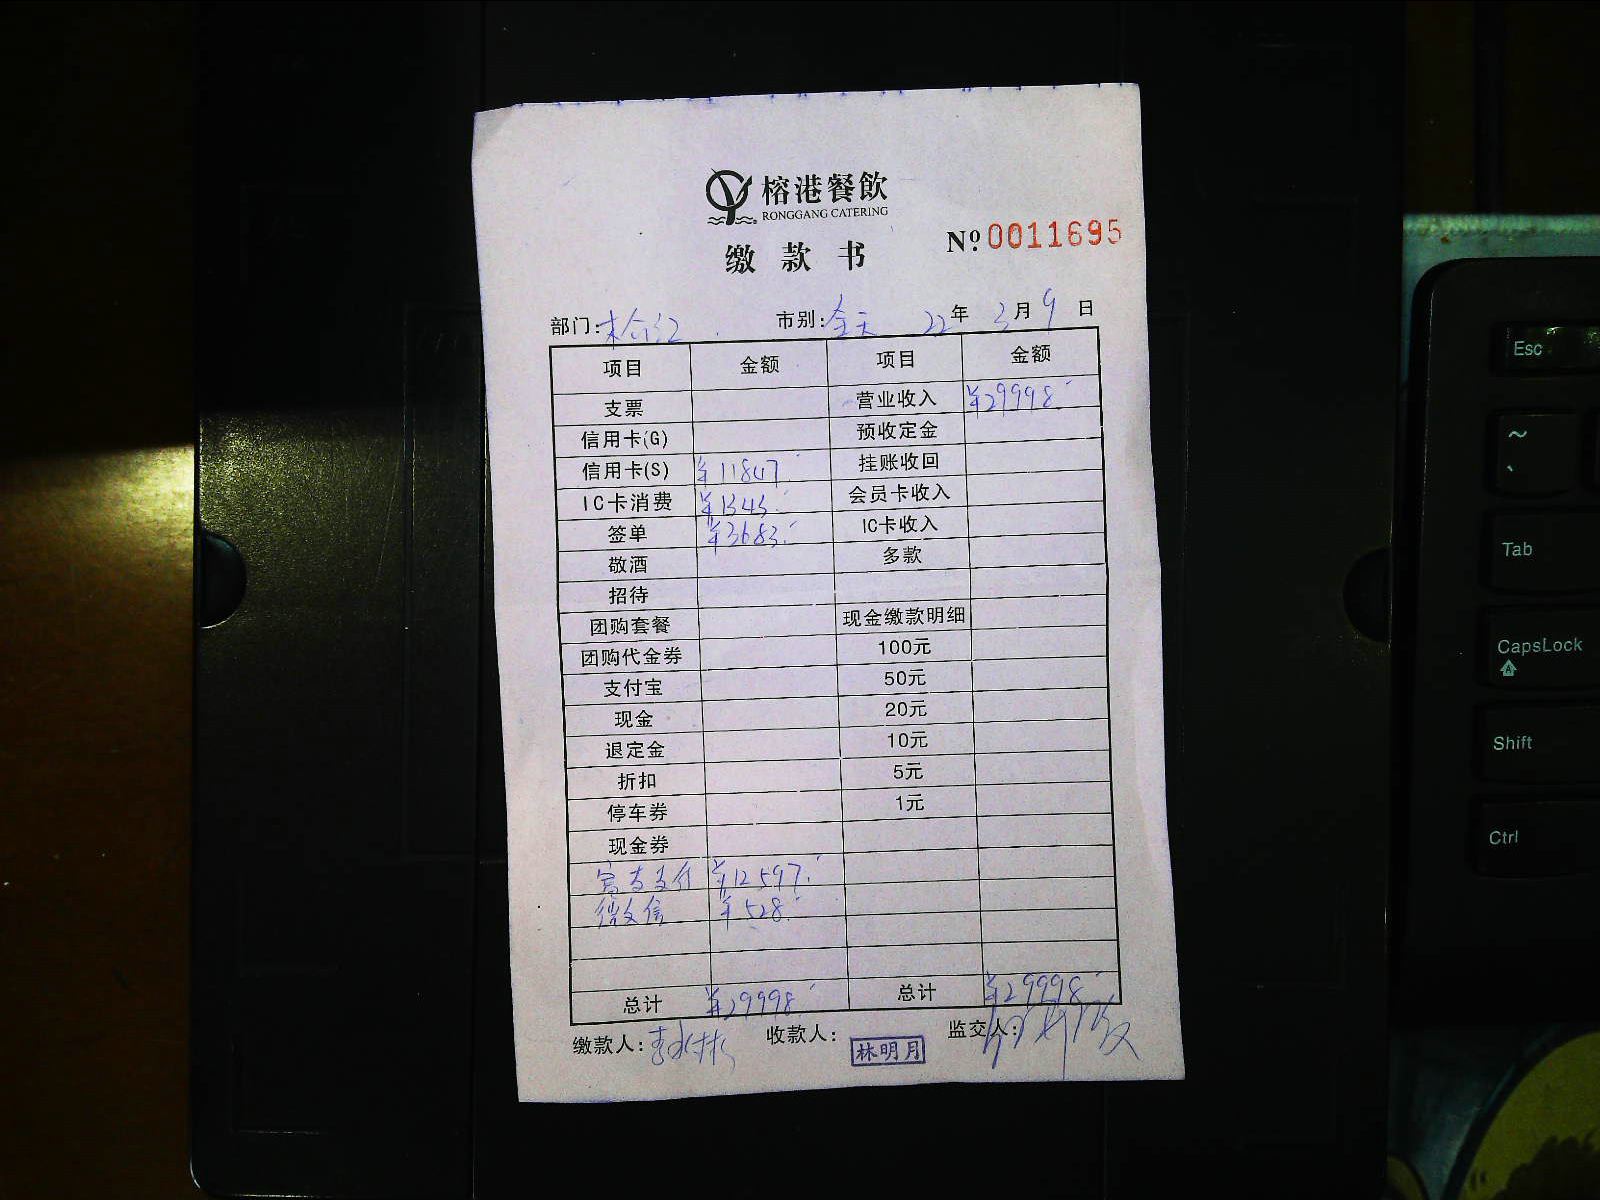 榕港餐飲
RONGGANG CATERING
缴款书
Nº 0011695
部门: 市别:全天 22年 3月 9日
项目 金额 项目 金额
支票 营业收入 ¥29998.
信用卡(G) 预收定金
信用卡(S) ¥11847. 挂账收回
IC卡消费 ¥1343. 会员卡收入
签单 ¥3683. IC卡收入
敬酒 多款
招待
团购套餐 现金缴款明细
团购代金券 100元
支付宝 50元
现金 20元
退定金 10元
折扣 5元
停车券 1元
现金券
¥12597.
微信 ¥528.
总计 ¥29998. 总计 ¥29998.
缴款人: 收款人: 林明月 监交人:
Esc
~
`
Tab
CapsLock
Shift
Ctrl